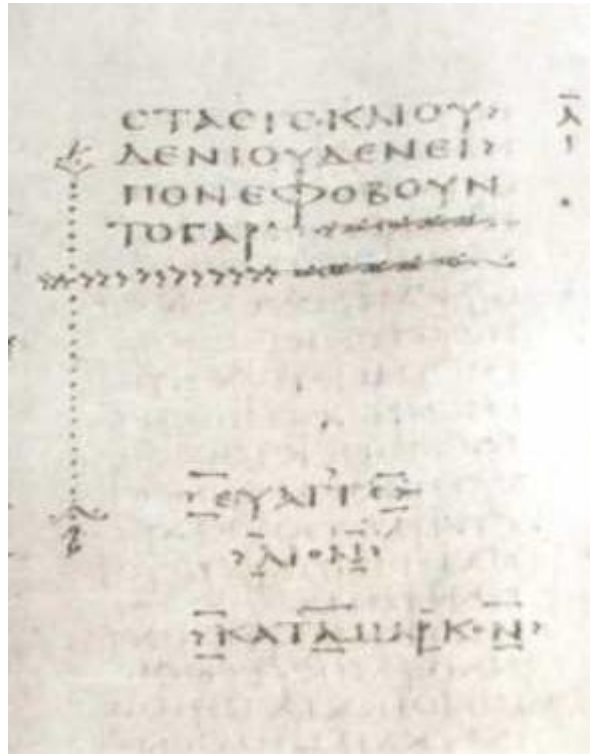 ϹΤΑϹΙϹ·ΚΑΙΟΥ
ΔΕΝΙΟΥΔΕΝΕΙ
ΠΟΝΕΦΟΒΟΥΝ
ΤΟΓΑΡ·
ΕΥΑΓΓΕ
ΛΙΟΝ
ΚΑΤΑΜΑΡΚΟΝ